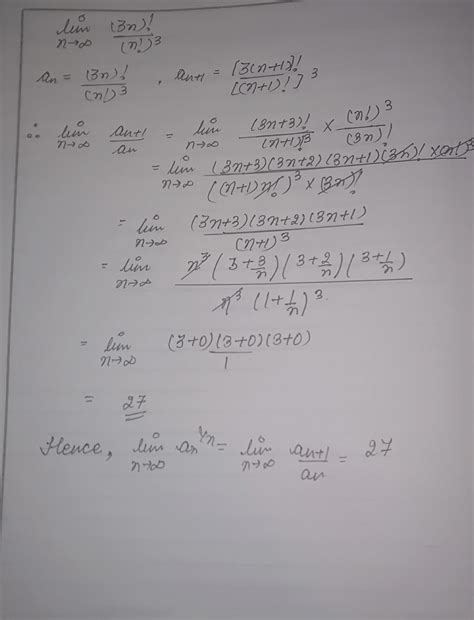 lim n→∞ (3n)!/(n!)^3
an = (3n)!/(n!)^3 , an+1 = [3(n+1)]!/[(n+1)!]^3
∴ lim n→∞ an+1/an = lim n→∞ (3n+3)!/(n+1)!^3 × (n!)^3/(3n)!
= lim n→∞ (3n+3)(3n+2)(3n+1)(3n)! × (n!)^3/((n+1)n!)^3 × (3n)!
= lim n→∞ (3n+3)(3n+2)(3n+1)/(n+1)^3
= lim n→∞ n^3(3+3/n)(3+2/n)(3+1/n)/n^3(1+1/n)^3
= lim n→∞ (3+0)(3+0)(3+0)/1
= 27
Hence, lim n→∞ an^1/n = lim n→∞ an+1/an = 27